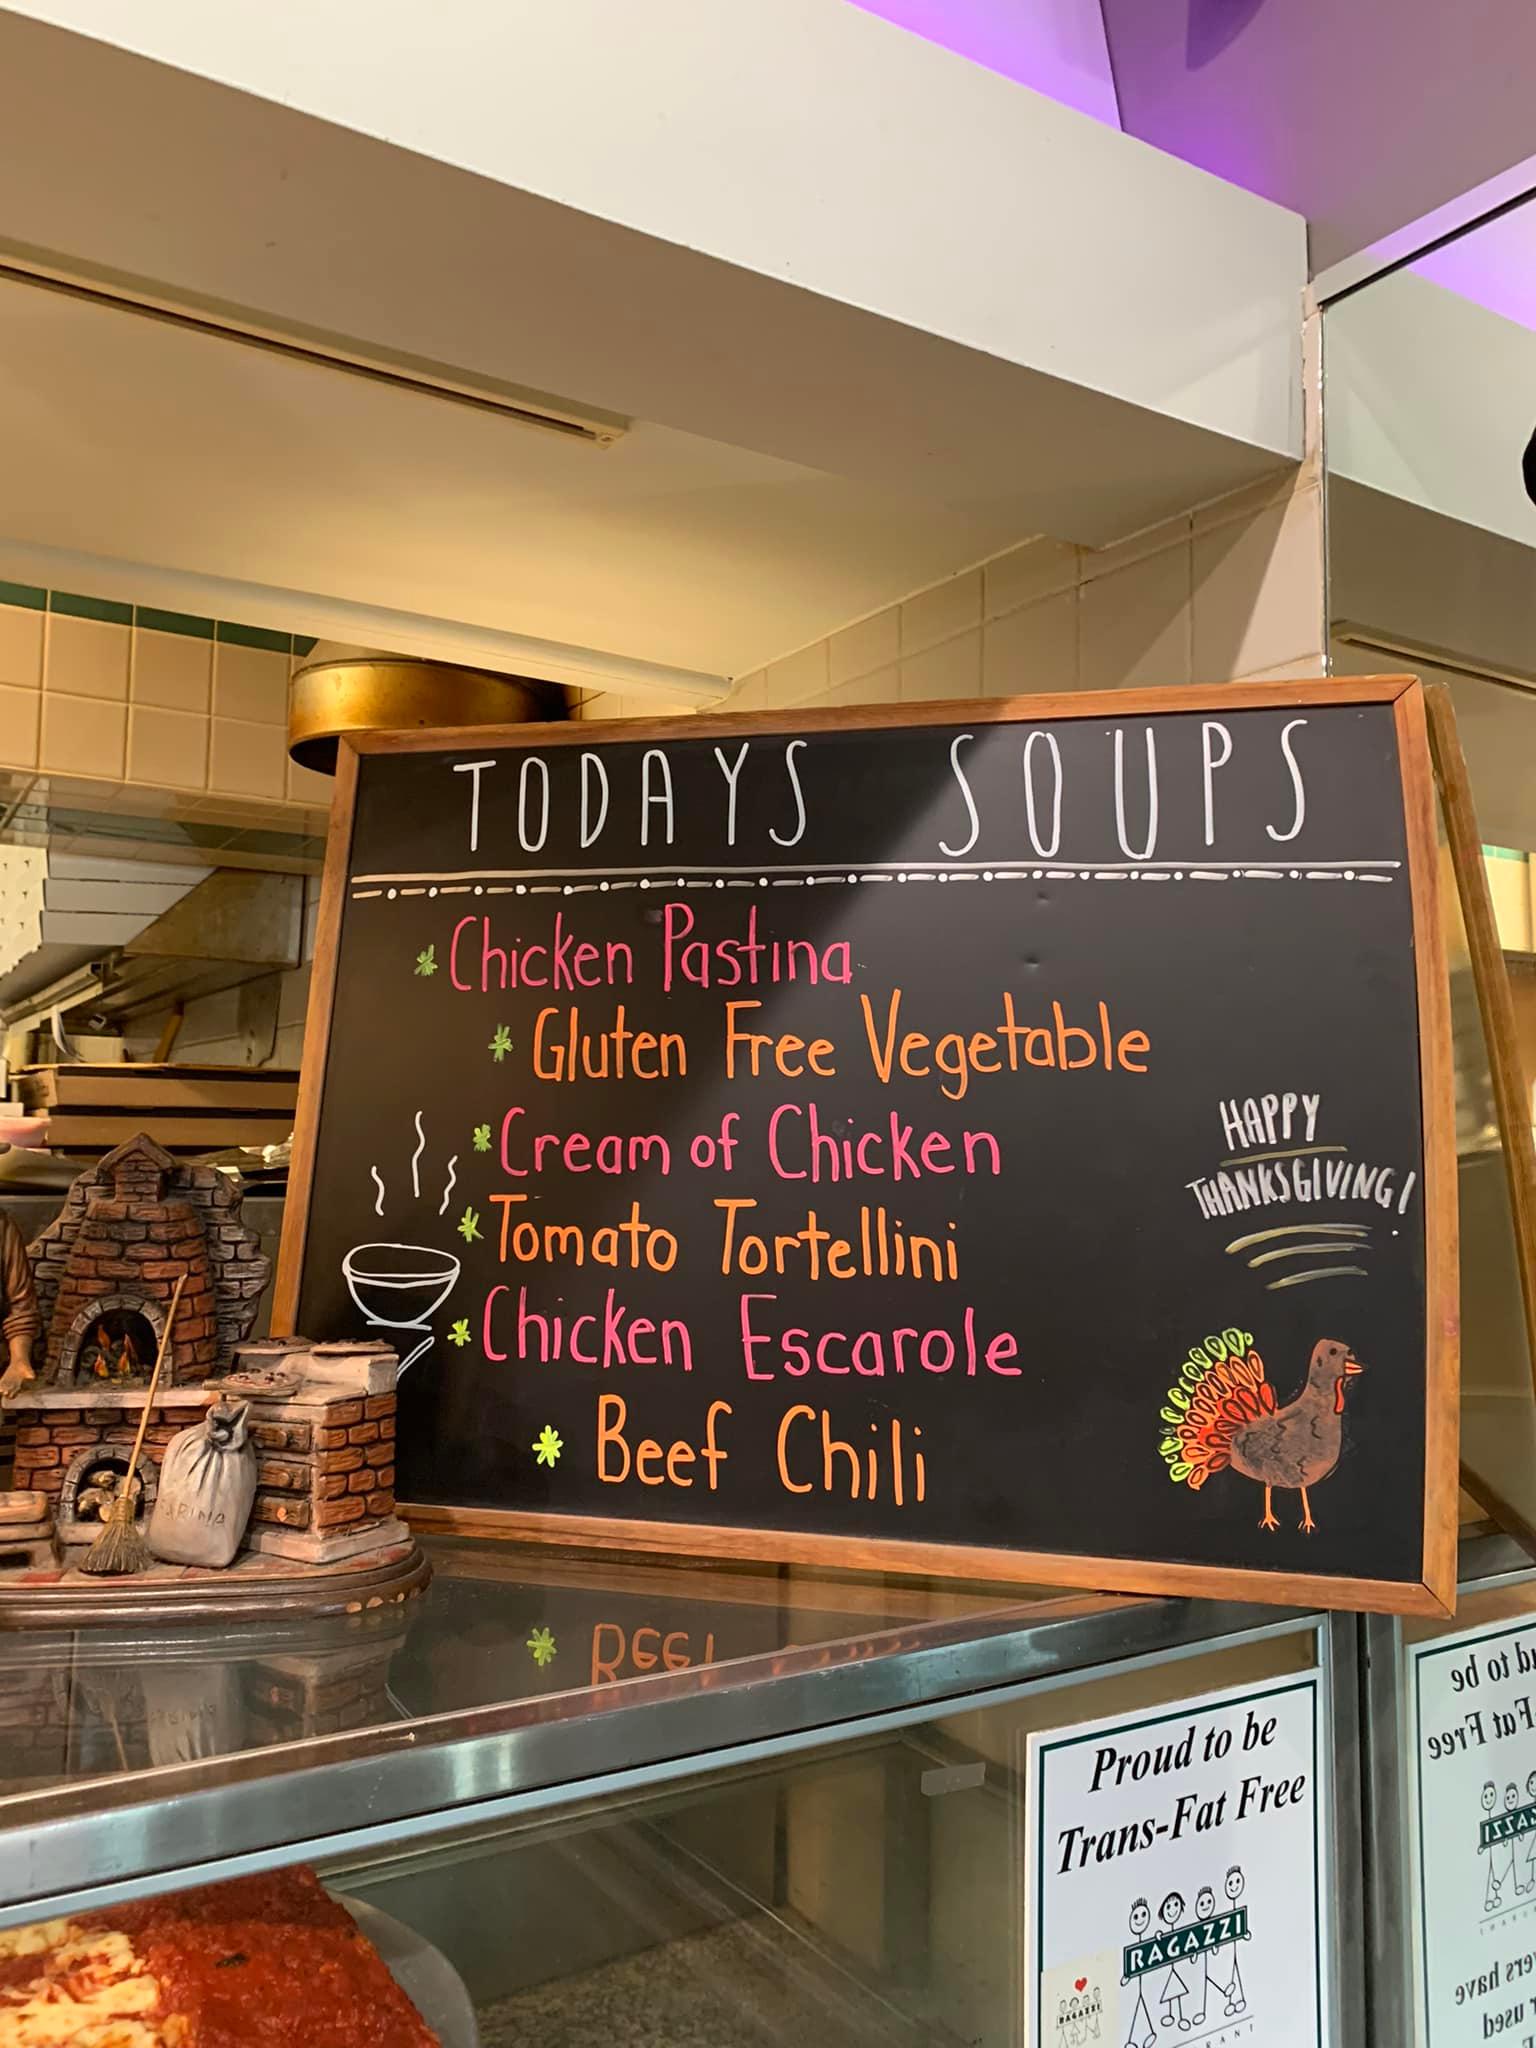 TODAYS SOUPS
* Chicken Pastina
* Gluten Free Vegetable
* Cream of Chicken
* Tomato Tortellini
* Chicken Escarole
* Beef Chili
HAPPY
THANKSGIVING!
FARINA
Proud to be
Trans-Fat Free
RAGAZZI
RAGAZZI